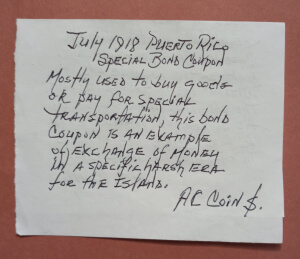 July 1918 Puerto Rico
Special Bond Coupon
Mostly used to buy goods
or pay for special
transportation, this bond
coupon is an example
of exchange of money
in a specific harsh era
for the Island.
AC Coin $.